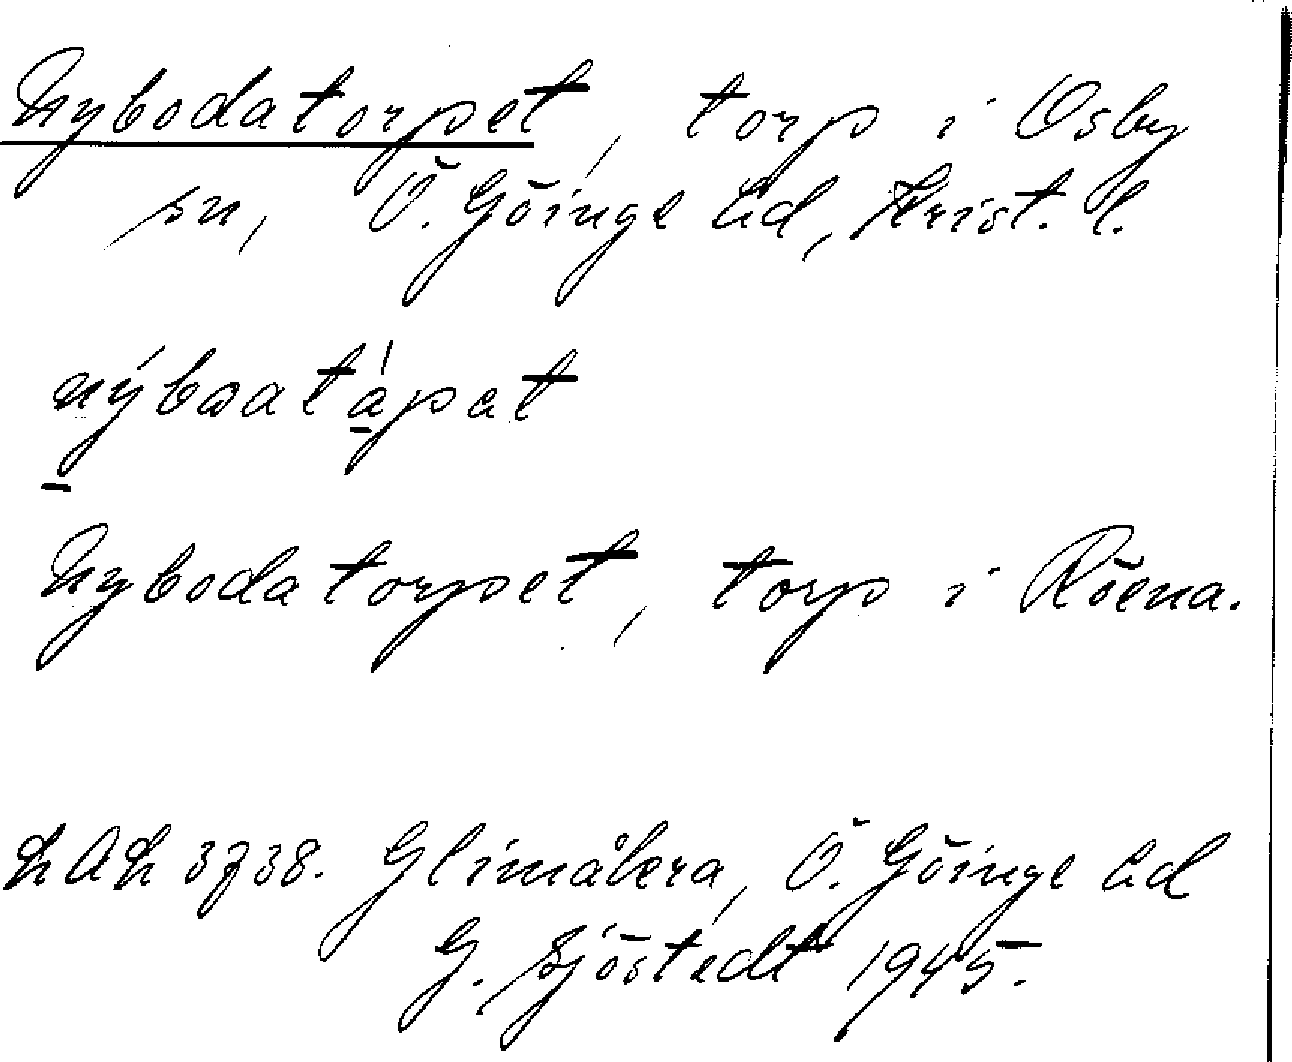 Nybodatorpet, torp i Osby
sn, Ö. Göinge hd, Krist. l.
nýbɷatápat
Nybodatorpet, torp i Röena.
LAL 3738. Glimåkra, Ö. Göinge hd
G. Sjöstedt 1945.